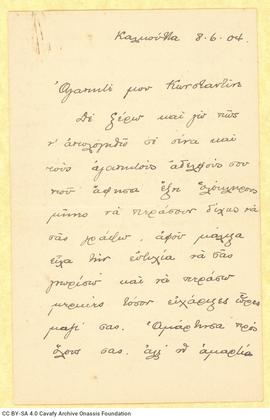 Καλκούττα 8-6-04.
Ἀγαπητέ μου Κωνσταντῖνε
Δὲ ξέρω καὶ γὼ πῶς
ν' ἀπολογηθῶ σὲ σένα καὶ
τοὺς ἀγαπητοὺς ἀδελφούς σου
ποῦ ἄφησα ἕξη ὁλόκληρους
μῆνες νὰ περάσουν δίχως νὰ
σᾶς γράψω, ἀφοῦ μάλιστα
εἶχα τὴν εὐτυχία νὰ σᾶς
γνωρίσω καὶ νὰ περάσω
μερικὲς τόσον εὐχάριστες ὧρες
μαζί σας. Ἁμάρτησα πρὸς
ὅλους σας, ἀλλ' ἡ ἁμαρτία
CC BY-SA 4.0 Cavafy Archive Onassis Foundation